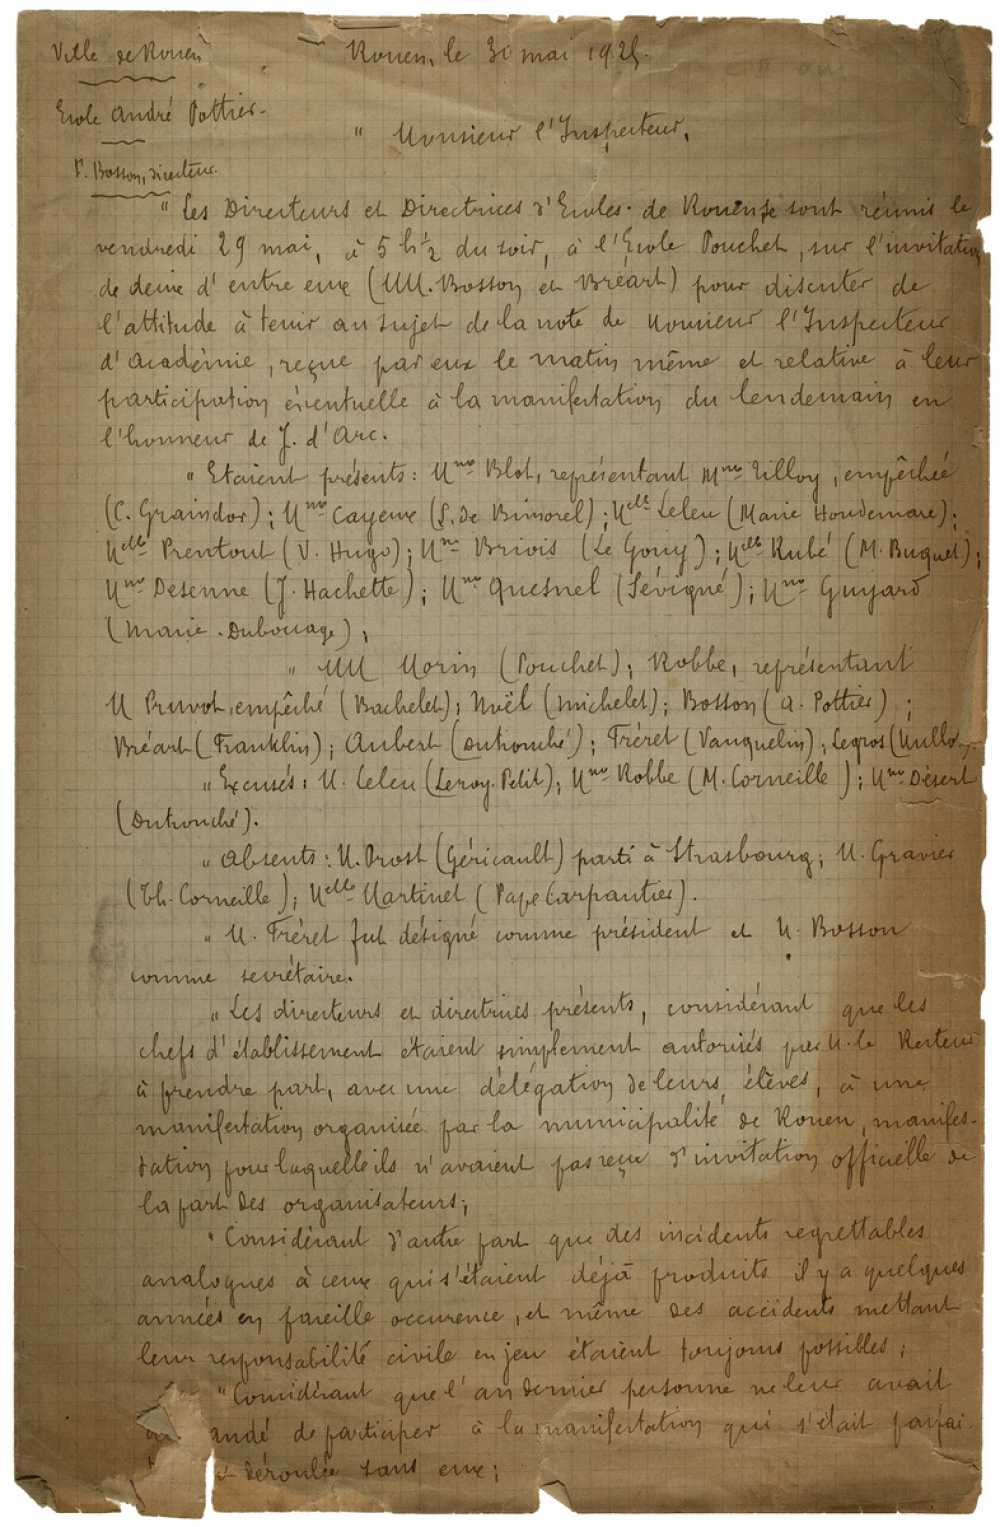 Ville de Rouen
Rouen, le 31 mai 1925.
Ecole André Pottier.
" Monsieur l'Inspecteur,
P. Bosson, directeur.
" Les Directeurs et Directrices d'Ecoles de Rouen se sont réunis le
vendredi 29 mai, à 5 h ½ du soir, à l'Ecole Pouchet, sur l'invitation
de deux d'entre eux (MM. Bosson et Bréart) pour discuter de
l'attitude à tenir au sujet de la note de Monsieur l'Inspecteur
d'académie, reçue par eux le matin même et relative à leur
participation éventuelle à la manifestation du lendemain en
l'honneur de J. d'Arc.
" Etaient présents : Mme Blot, représentant Mme Tilloy, empêchée
(C. Graindor) ; Mme Cayeux (S. de Bimorel) ; Melle Leleu (Marie Houdemare) ;
Melle Prentout (V. Hugo) ; Mme Brivois (Le Gouy) ; Melle Rubé (M. Buquet) ;
Mme Desenne (J. Hachette) ; Mme Quesnel (Sévigné) ; Mme Guyard
(Marie Dubocage) ;
" MM Morin (Pouchet) ; Robbe, représentant
M Pruvot, empêché (Bachelet) ; Noël (Michelet) ; Bosson (A. Pottier) ;
Bréart (Franklin) ; Aubert (Dutronché) ; Fréret (Vauquelin) ; Legros (Mullo
" Excusés : M. Leleu (Leroy-Petit) ; Mme Robbe (M. Corneille) ; Mme Désert
(Dutronché).
" Absents : M. Prost (Géricault) parti à Strasbourg ; M. Gravier
(Th. Corneille) ; Melle Martinet (Pape Carpantier).
" M. Fréret fut désigné comme président et M. Bosson
comme secrétaire.
" Les directeurs et directrices présents, considérant que les
chefs d'établissement étaient simplement autorisés par M. le Recteur
à prendre part, avec une délégation de leurs élèves, à une
manifestation organisée par la municipalité de Rouen, manifes-
tation pour laquelle ils n'avaient pas reçu d'invitation officielle de
la part des organisateurs ;
" Considérant d'autre part que des incidents regrettables
analogues à ceux qui s'étaient déjà produits il y a quelques
années en pareille occurence, et même des accidents mettant
leur responsabilité civile en jeu étaient toujours possibles ;
" Considérant que l'an dernier personne ne leur avait
andé de participer à la manifestation qui s'était parfai
déroulée sans eux ;